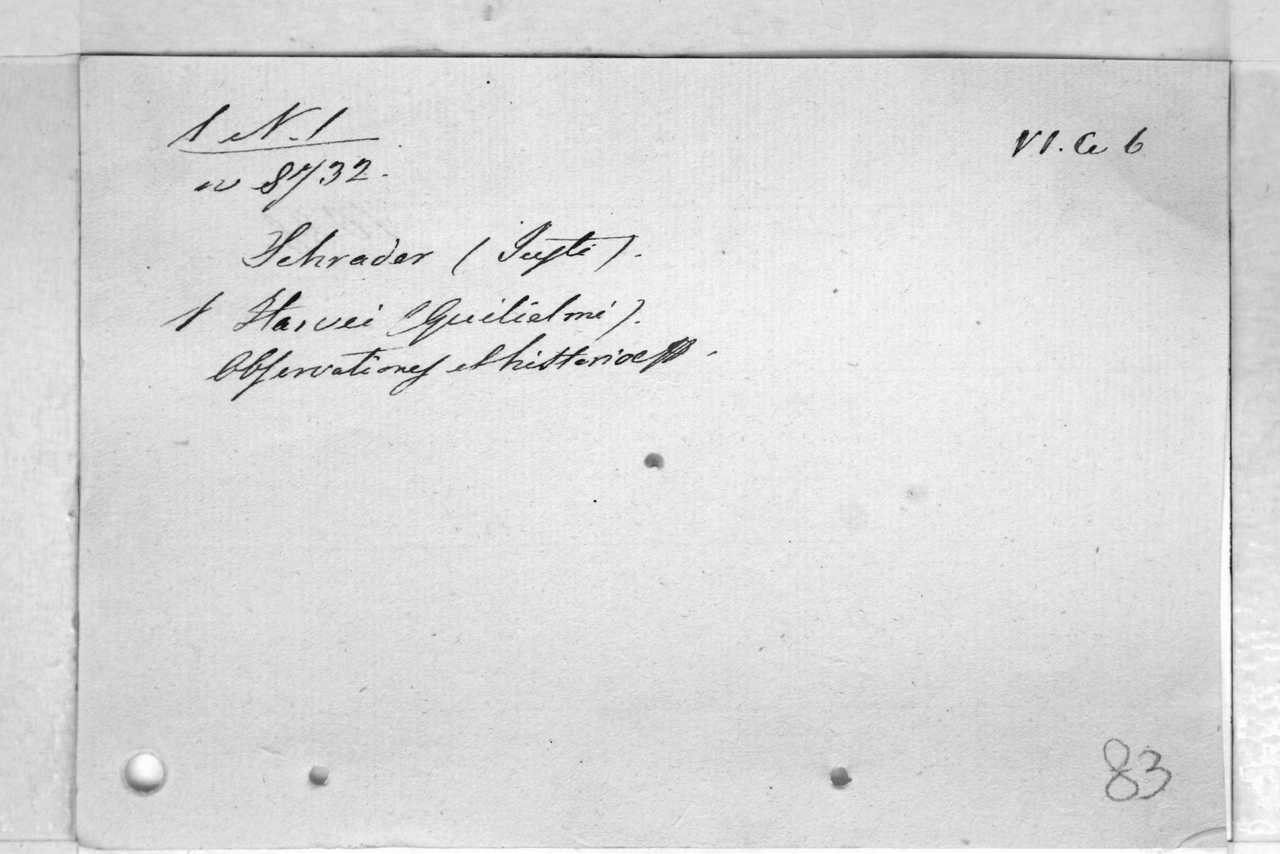 1 N. 1
n 8732.
VI. C. 6
Schrader (Justi).
1 Harvei (Guilielmi).
Observationes et historiae.
83